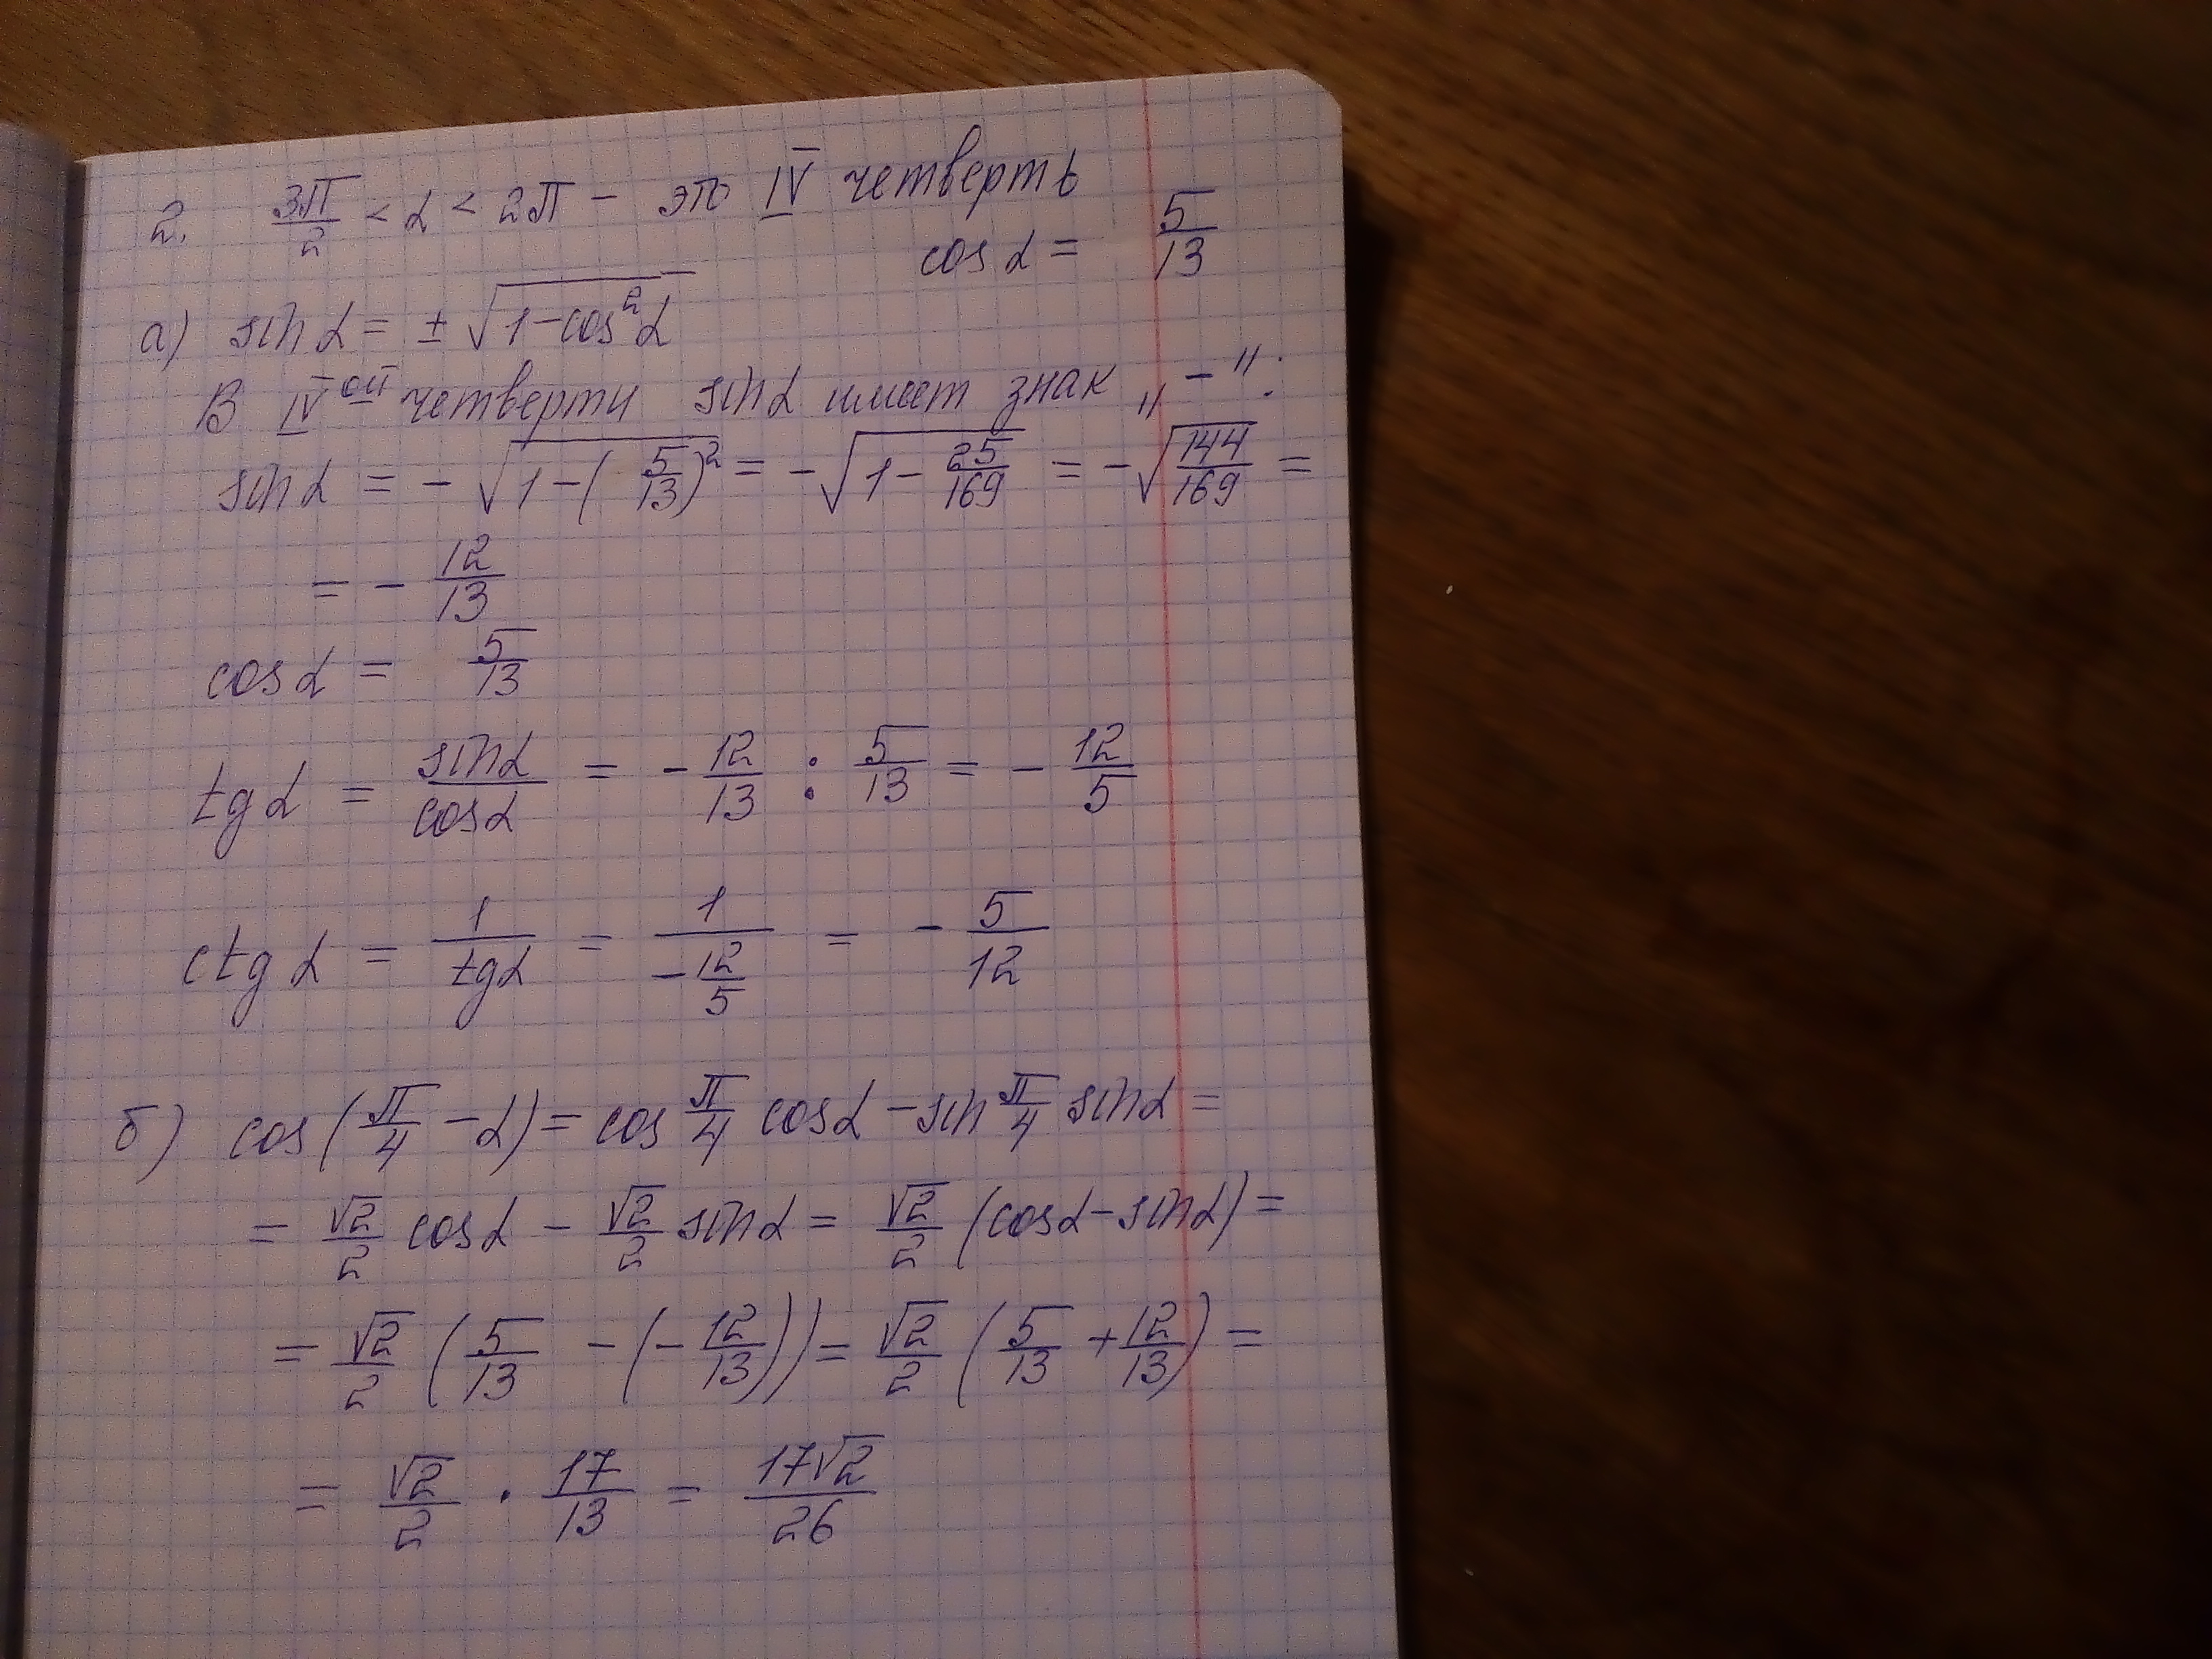 2. 3π/2 < α < 2π - это IV четверть
cos α = 5/13
а) sin α = ± √(1-cos²α)
В IV ой четверти sin α имеет знак „-":
sin α = - √(1-(5/13)²) = -√(1-25/169) = -√(144/169) =
= - 12/13
cos α = 5/13
tg α = sin α/cos α = - 12/13 : 5/13 = - 12/5
ctg α = 1/tg α = 1/(-12/5) = - 5/12
б) cos(π/4 - α) = cos π/4 cos α - sin π/4 sin α =
= √2/2 cos α - √2/2 sin α = √2/2 (cos α - sin α) =
= √2/2 (5/13 - (- 12/13)) = √2/2 (5/13 + 12/13) =
= √2/2 · 17/13 = 17√2/26